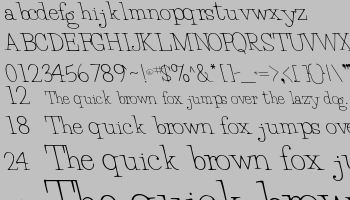 abcdefghijklmnopqrstuvwxyz
ABCDEFGHIJKLMNOPQRSTUVWX
0123456789~!@#$%^&*[]-_.=>,<[]{}\|'"
12 The quick brown fox jumps over the lazy dog.
18 The quick brown fox jumps ove
24 The quick brown fox ju
The quick brow